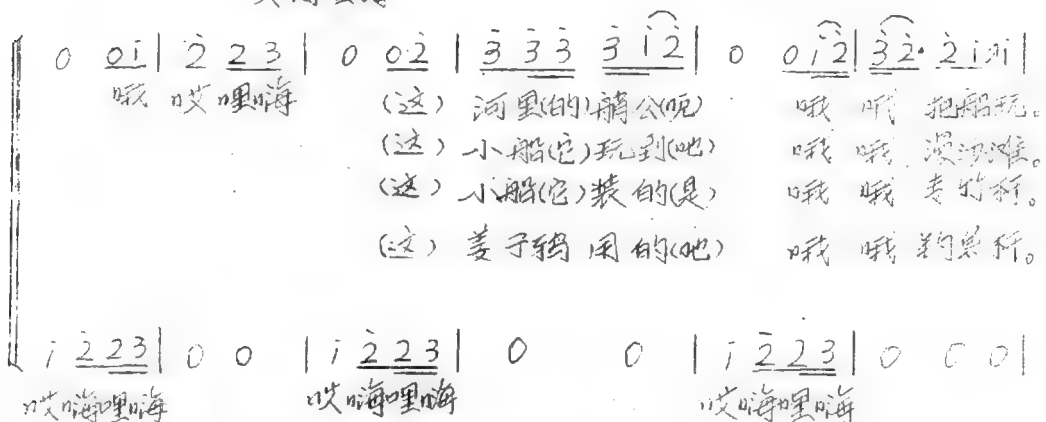 0 0i | 2 2 3 | 0 02 | 3 3 3 3 i 2 | 0 0 i 2 | 3 2· 2 i
哦 哎哩嗨 (这) 河里(的)艄公(呃) 哦 哦 把船玩。
(这) 小船(它)玩到(吔) 哦 哦 滩。
(这) 小船(它)装的(是) 哦 哦
(这) 姜子鸦 用的(吔) 哦 哦
i 2 2 3 | 0 0 | i 2 2 3 | 0 0 | i 2 2 3 | 0 0 0 |
哎嗨哩嗨 哎嗨哩嗨 哎嗨哩嗨